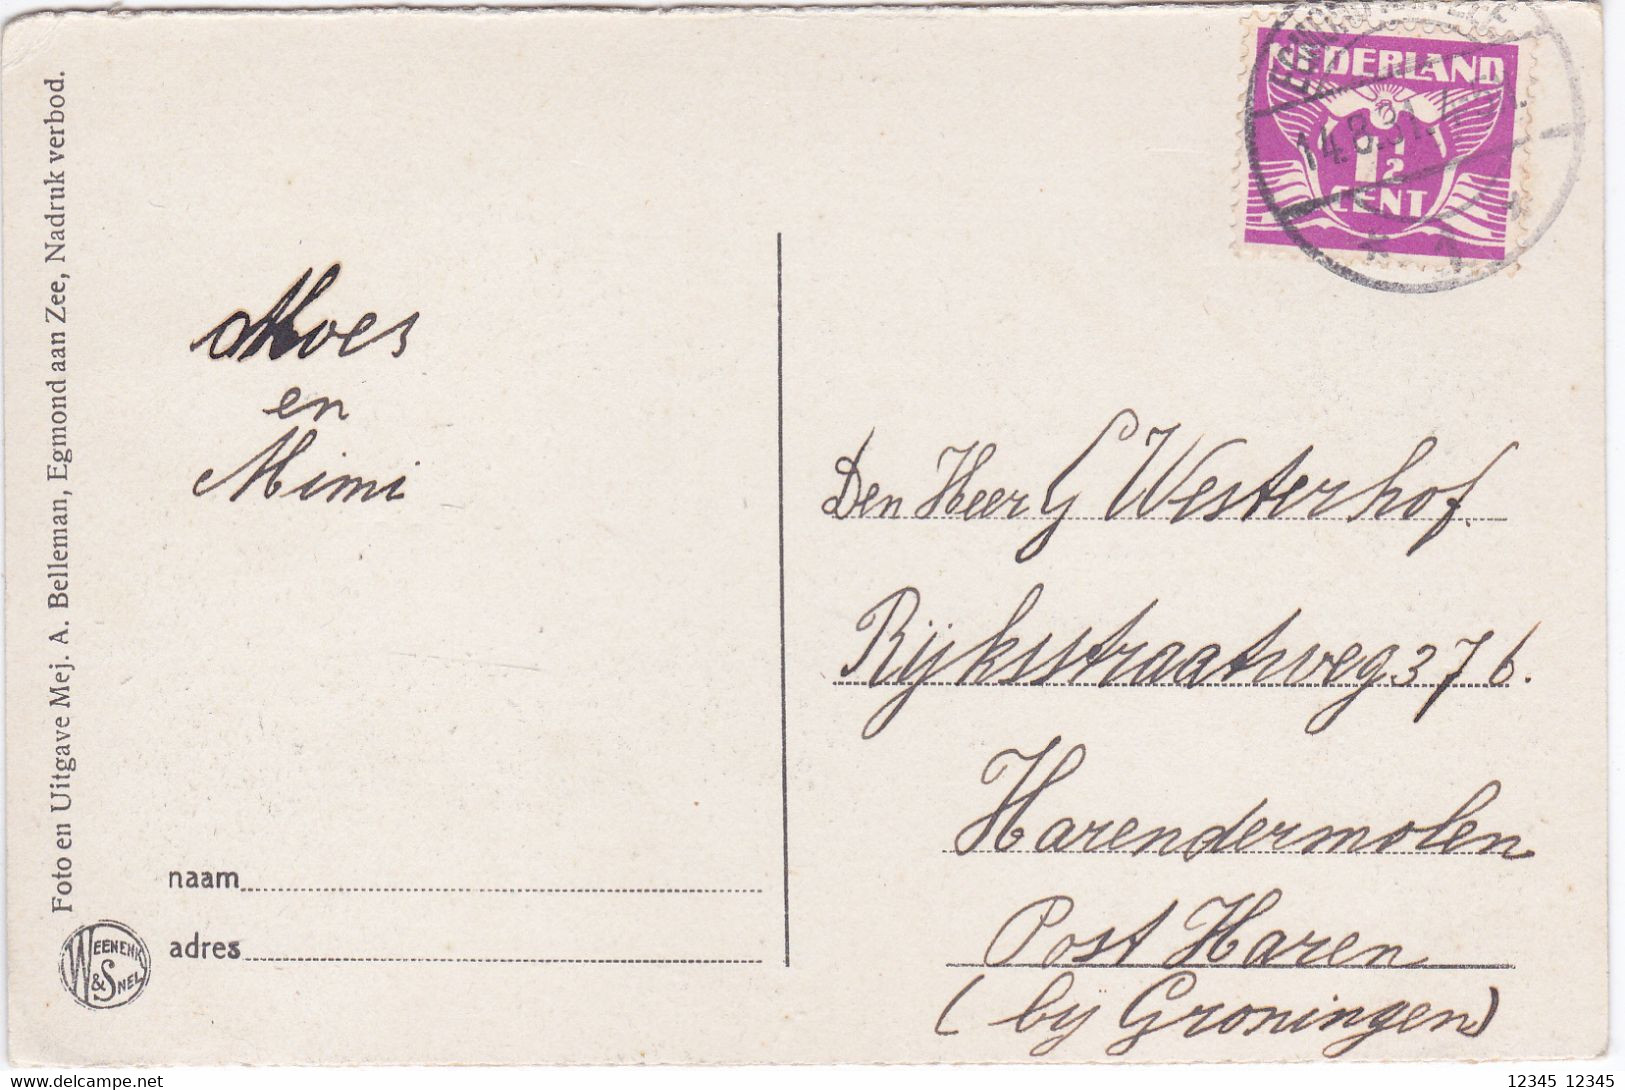 Foto en Uitgave Mej. A. Belleman, Egmond aan Zee, Nadruk verbod.
Moes
en
Mimi
naam
adres
WEENENK
& SNEL
NEDERLAND
1 1/2
CENT
14.8.31.
Den Heer G Westerhof.
Rijksstraatweg 376.
Harendermolen
Post Haren
(bij Groningen)
12345 12345